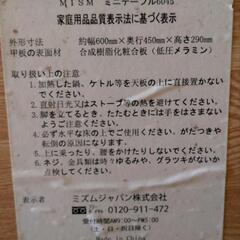 MISM ミニテーブル6045
家庭用品品質表示法に基づく表示
外形寸法 : 約幅600mm×奥行450mm×高さ290mm
甲板の表面材 : 合成樹脂化粧合板(低圧メラミン)
取り扱い上の注意
1.加熱した鍋、ケトル等を天板の上に直接置かない
でください。
2.直射日光又はストーブの熱などをさけてください。
3.脚を立てるとき、たたむときはヒンジにご注意
ください。
4.必ず水平な床の上でご使用ください。がたつきや
転倒の原因になります。
5.上に乗ったり、腰をかけたりしないでください。
6.ネジ、金具類は時々ゆるみや、グラツキがないか
お確かめください。
表示者 : ミズムジャパン株式会社
0120-911-472
受付時間AM9:00~PM5:00
(土・日・祝日除く)
Made in China